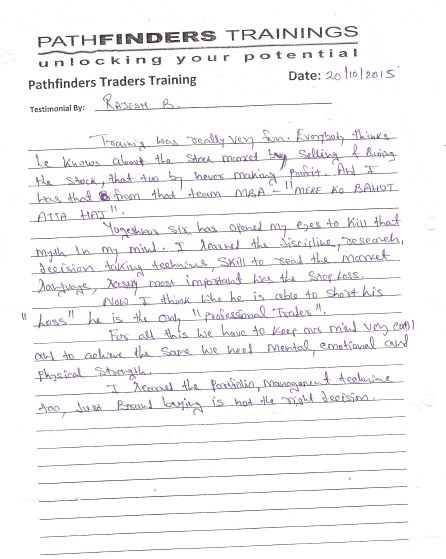 PATHFINDERS TRAININGS
unlocking your potential
Pathfinders Traders Training
Date: 20/10/2015
Testimonial By: RAJESH B.
Training was really very fun. Everybody thinks
he knows about the stock market by selling & Buying
the stock, that too by never making profit. And I
was that from that team MBA - "MERE KO BAHUT
ATTA HAI".
Yogeshwar sir has opened my eyes to kill that
myth in my mind. I learned the discipline, research,
decision taking technique, skill to read the market
language, most important was the Stop Loss.
Now I think who he is able to short his
"Loss" he is the only "professional Trader".
For all this we have to keep our mind very cool
and to achieve the same we need mental, emotional and
Physical Strength.
I learned the portfolio, management technique
too, Just Brand buying is not the right decision.